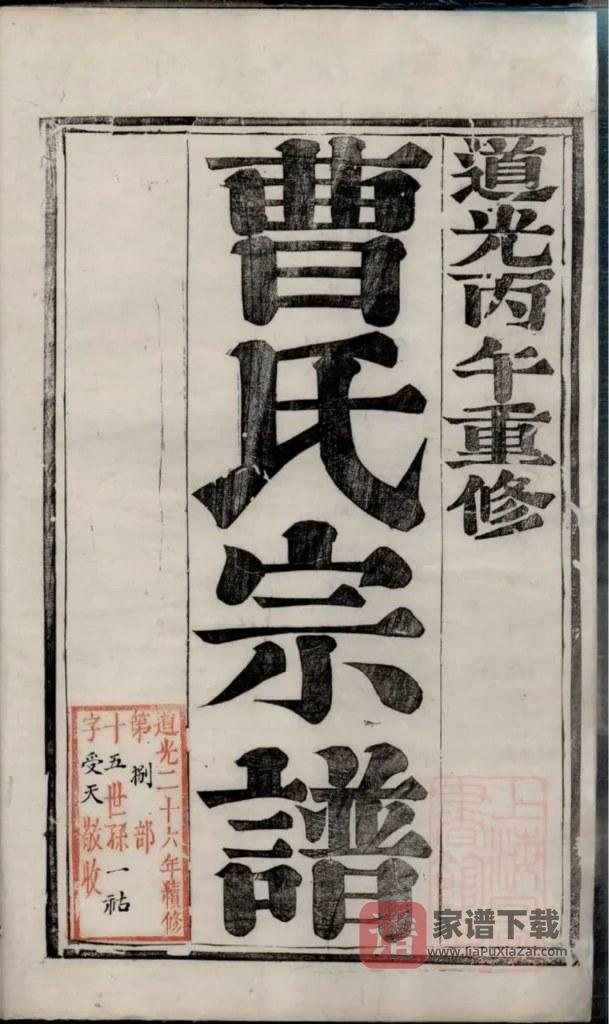 道光丙午重修
曹氏宗譜
道光二十六年續修
第捌部
十五世孫一祜
字受天敬收
上海
書館
家谱下载
www.JiaPuXiaZai.com
譜